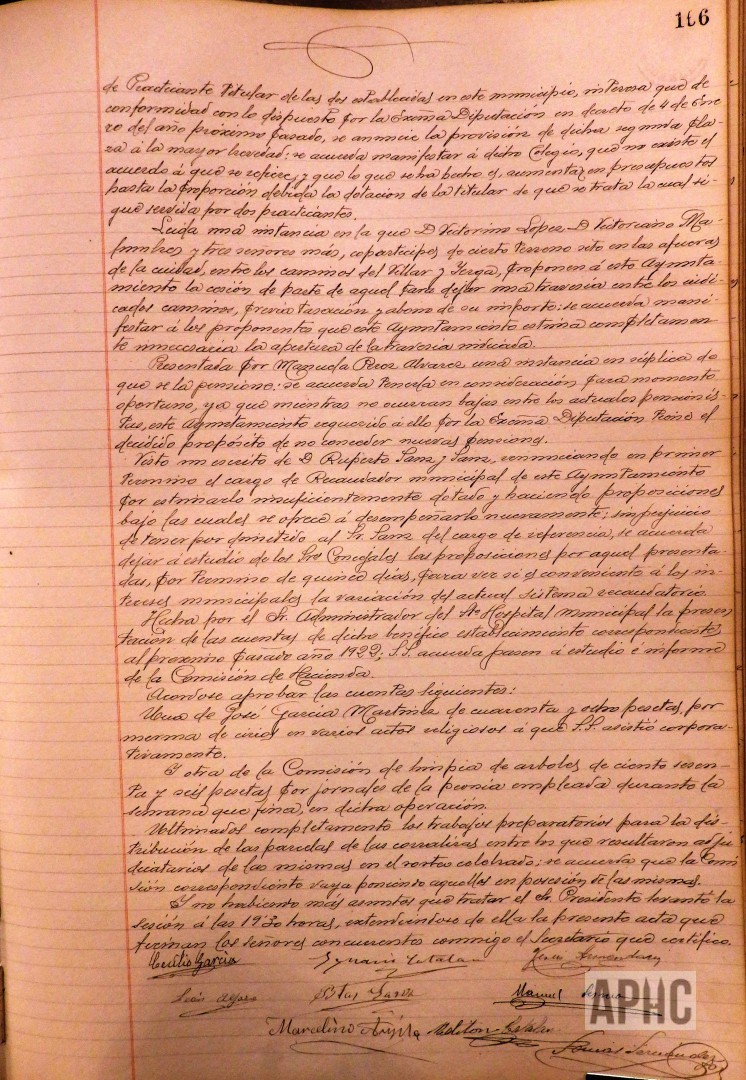 106
de Practicante titular de las dos establecidas en este municipio, interesa que de
conformidad con lo dispuesto por la Excma Diputación en decreto de 4 de Ene-
ro del año próximo pasado, se anuncie la provisión de dicha segunda pla-
za á la mayor brevedad: se acuerda manifestar á dicho Colegio, que no existe el
acuerdo á que se refiere, y que lo que se ha hecho es, aumentar en presupuestos
hasta la proporción debida la dotación de la titular de que se trata la cual si-
gue servida por dos practicantes.
Leida una instancia en la que D Victorino Lopez D Victoriano Ma-
lumbres y tres señores más, copartícipes de cierto terreno sito en las afueras
de la ciudad, entre los caminos del Villar y Yerga, proponen á este Ayunta-
miento la cesión de parte de aquel para dejar una travesia entre los indi-
cados caminos, previa tasación y abono de su importe: se acuerda mani-
festar á los proponentes que este Ayuntamiento estima completamen-
te innecesaria la apertura de la travesia indicada.
Presentada por Manuela Perez Alvarez una instancia en súplica de
que se la pensione: se acuerda tenerla en consideración para momento
oportuno, ya que mientras no ocurran bajas entre los actuales pensionis-
tas, este Ayuntamiento requerido á ello por la Excma Diputación tiene el
decidido propósito de no conceder nuevas pensiones.
Visto un escrito de D Ruperto Sanz y Sanz, renunciando en primer
termino el cargo de Recaudador municipal de este Ayuntamiento
por estimarlo insuficientemente dotado y haciendo proposiciones
bajo las cuales se ofrece á desempeñarlo nuevamente: sin perjuicio
de tener por dimitido al Sr. Sanz del cargo de referencia, se acuerda
dejar á estudio de los Sres Concejales las proposiciones por aquel presenta-
das, por termino de quince dias, para ver si es conveniente á los in-
tereses municipales la variación del actual sistema recaudatorio.
Hecha por el Sr. Administrador del Sto Hospital municipal la presen-
tación de las cuentas de dicho benéfico establecimiento correspondientes
al proximo pasado año 1922; S.S. acuerda pasen á estudio é informe
de la Comisión de Hacienda.
Acordose aprobar las cuentas siguientes:
Una de José Garcia Martinez de cuarenta y ocho pesetas, por
merma de cirios en varios actos religiosos á que S.S. asistió corpora-
tivamente.
Y otra de la Comisión de limpia de arboles de ciento sesen-
ta y seis pesetas por jornales de la peonia empleada durante la
semana que fina, en dicha operación.
Ultimados completamente los trabajos preparatorios para la dis-
tribución de las parcelas de las corralizas entre los que resultaron adju-
dicatarios de las mismas en el sorteo celebrado; se acuerda que la Comi
sión correspondiente vaya poniendo aquellos en posesión de las mismas.
Y no habiendo más asuntos que tratar el Sr. Presidente levantó la
sesión á las 19'30 horas, extendiendose de ella la presente acta que
firman los señores concurrentes conmigo el Secretario que certifico.
Cecilio Garcia
Catalan
León
Blas
Manuel
Marcelino
Meliton
APHC